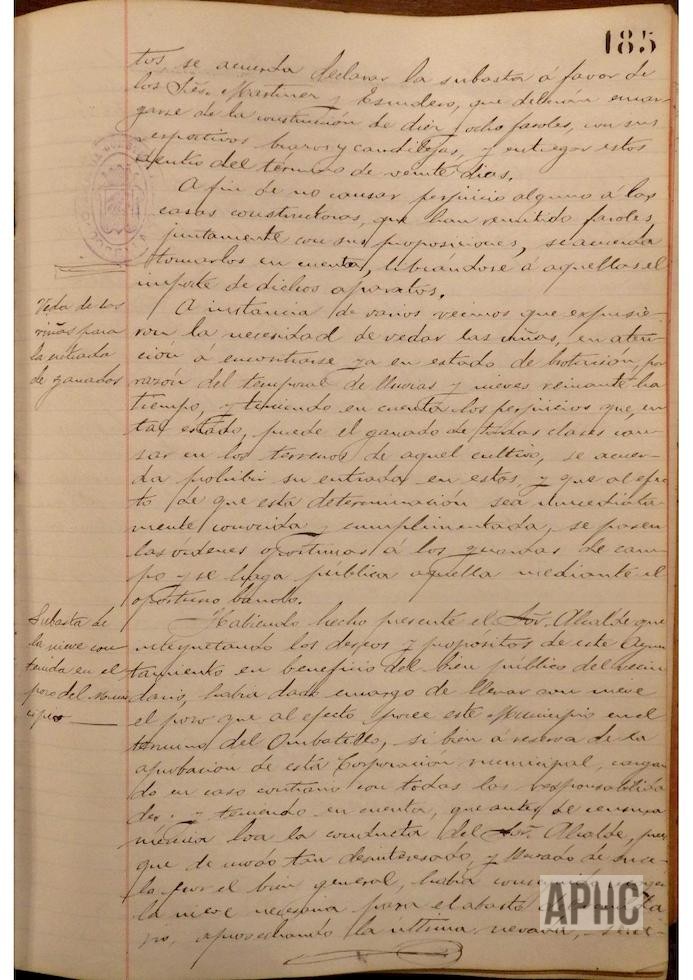 185
tos, se acuerda declarar la subasta á favor de
los Sres. Martinez y Escudero, que deberán encar-
garse de la construcción de diez y ocho faroles, con sus
respectivos brazos y candilejas, y entregar estos
dentro del término de veinte dias.
A fin de no causar perjuicio alguno á las
casas constructoras, que han remitido faroles
juntamente con sus proposiciones, se acuerda
tomarlos en cuenta, librándose á aquellas el
importe de dichos aparatos.
Veda de las
viñas para
la entrada
de ganados
A instancia de varios vecinos que expusie-
ron la necesidad de vedar las viñas, en aten-
ción á encontrarse ya en estado de brotacion, por
razón del temporal de lluvias y nieves reinante ha
tiempo, y teniendo en cuenta los perjuicios que, en
tal estado, puede el ganado de todas clases cau-
sar en los terrenos de aquel cultivo, se acuer-
da prohibir su entrada en estos, y que al efec-
to de que esta determinación sea inmediata-
mente conocida y cumplimentada, se pasen
las órdenes oportunas á los guardas de cam-
po y se haga pública aquella mediante el
oportuno bando.
Subasta de
la nieve con
tenida en el
pozo del Muni
cipio
Habiendo hecho presente el Sor. Alcalde que
interpretando los deseos y propósitos de este Ayun
tamiento en beneficio del bien público del vecin
dario, habia dado encargo de llenar con nieve
el pozo que al efecto posee este Municipio en el
término del Ombatillo, si bien á reserva de la
aprobacion de esta Corporación municipal, cargan
do en caso contrario con todas las responsabilida
des; y teniendo en cuenta, que antes de
loa la conducta del Sor. Alcalde, pues
que de modo tan desinteresado, y llevado de su ce-
lo por el bien general, habia
la nieve necesaria para el abasto
aprovechando la última nevada,
APHC